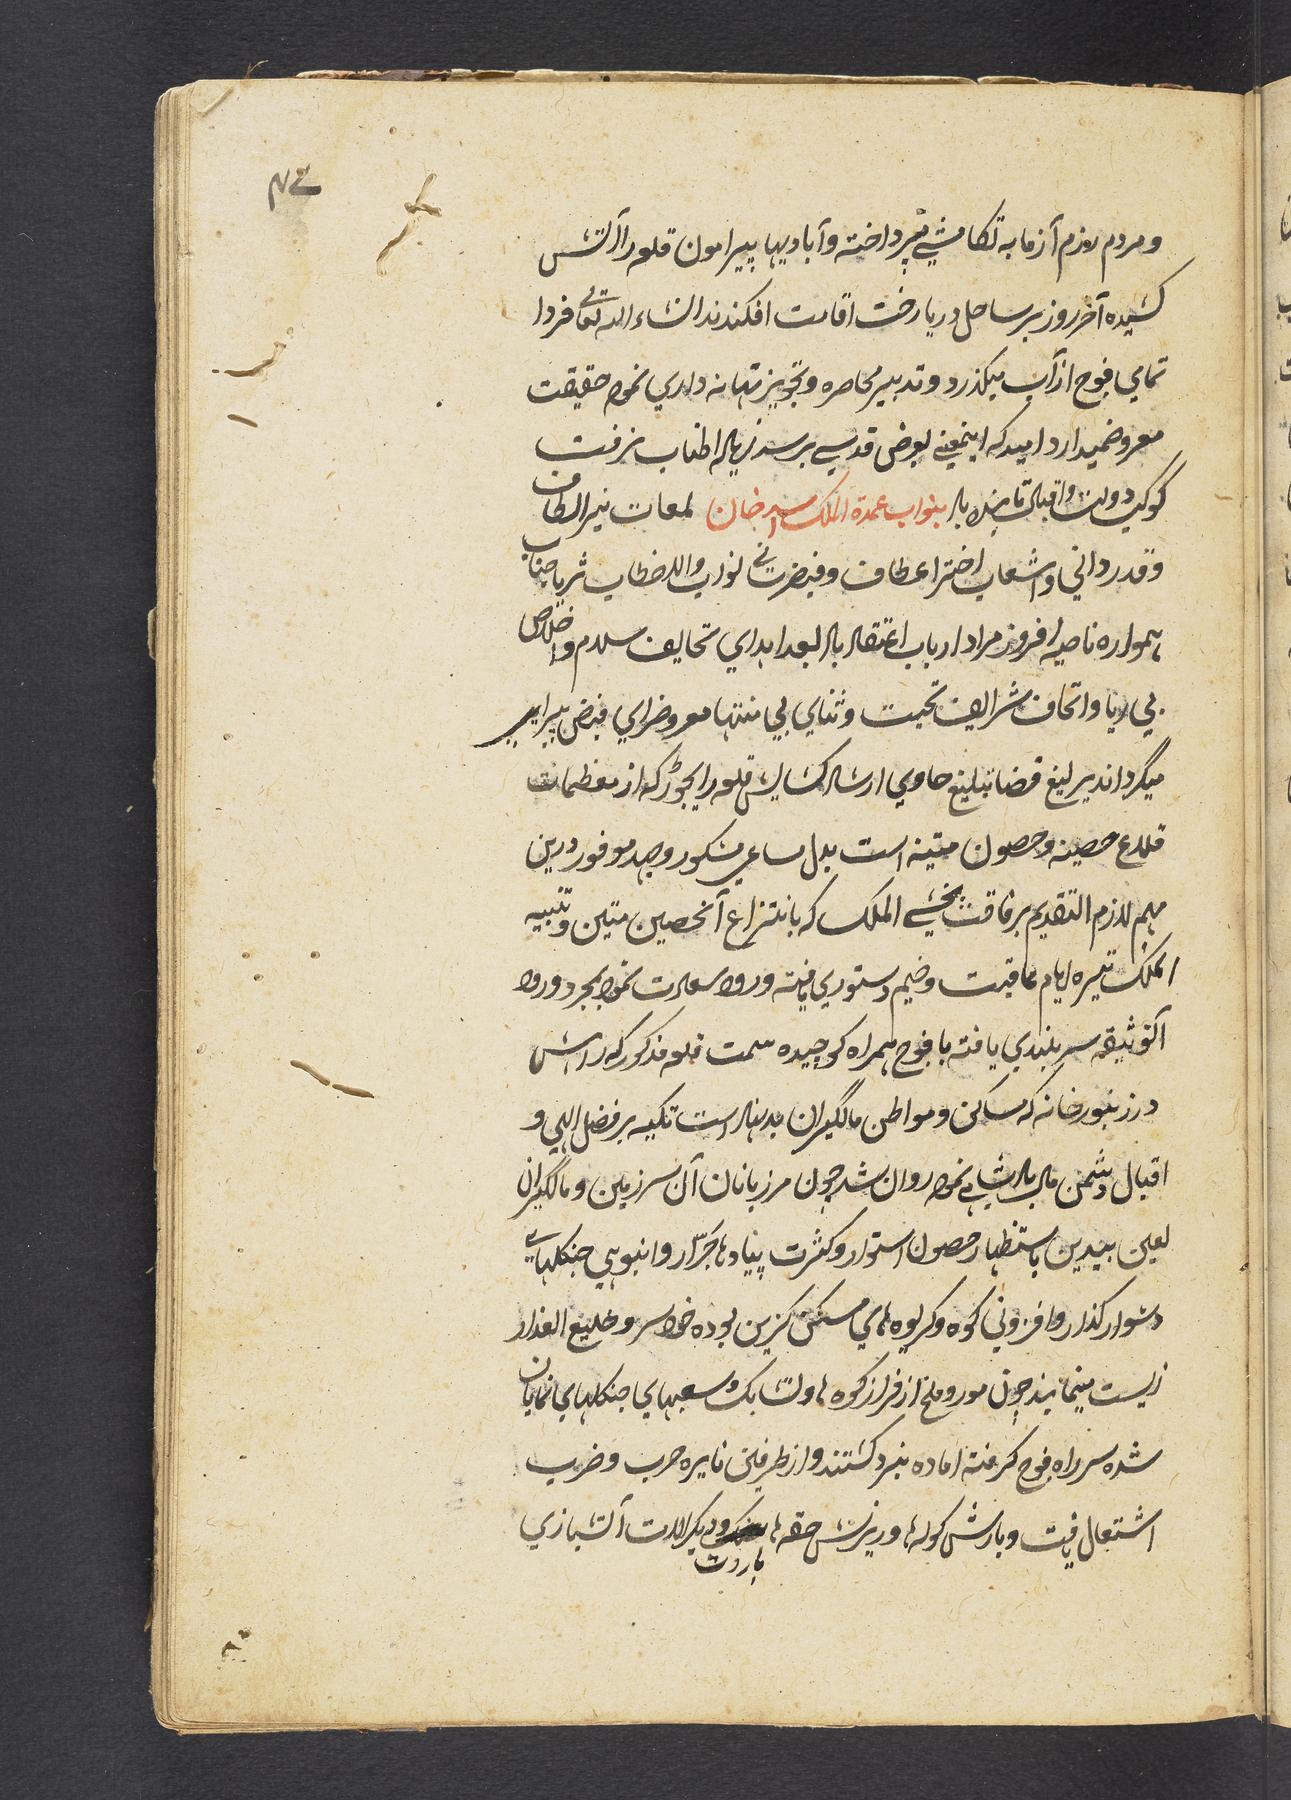 و مردم رزم آزما به تکامشي پرداخته و آباديها پيرامون قلعه را آتش
کشيده آخر روز بر ساحل دريا رخت اقامت افکندند انشاء الله تعالي فردا
تمامي فوج از آب ميگذرد و تدبير محاصره و تجويز تهانه داري نموده حقيقت
معروض ميدارد اميد که اينمعني بعرض قدسي برسد زياده اطناب نرفت
کوکب دولت و اقبال تابنده باد بنواب عمدة الملک اسد خان لمعات نير الطاف
و قدرداني و اشعاب اختر اعطاف و فيضرساني نواب والا خطاب ثريا جناب
همواره ناصيه افروز مراد ارباب اعتقاد باد بعد اهداي تحايف سلام و اخلاص
بي ريا و اتحاف شرايف تحيت و ثناي بي منتها معروض راي فيض پيراي
ميگرداند يرليغ قضا تبليغ حاوي ارشاد کشايش قلعه رايجور که از معظمات
قلاع حصينه و حصون متينه است بذل مساعي مشکور و جهد موفور درين
مهم لازم التقديم برفاقت بخشي الملک که بانتزاع آنحصين متين و تنبيه
الملک تيره ايام عاقبت وخيم دستوري يافته ورود سعادت نموده بمجرد ورود
آنوثيقه سربلندي يافته با فوج همراه کوچيده سمت قلعه مذکور که راهش
در زنبورخانه که مساکن و مواطن مالگيران بدنهاد است تکيه بر فضل الهي و
اقبال دشمن مال بادشاهي نموده روان شد چون مرزبانان آن سرزمين و مالگيران
لعين بيدين باستظهار حصون استوار و کثرت پيادها جرّار و انبوهي جنکلهاي
دشوار کذار و افزوني کوه و کريوه هاي مسکن کزين بوده خودسر و خليع العذار
زيست مينمايند چون مور و ملخ از فراز کوه ها و تشابک و شعبهاي جنکلهاي نمايان
شده سر راه فوج کرفته اماده نبرد کشتند و از طرفين نايره حرب و ضرب
اشتعال يافت و بارش کوله ها و ريزش حقه ها و ديکر الات آتشبازي
باروت